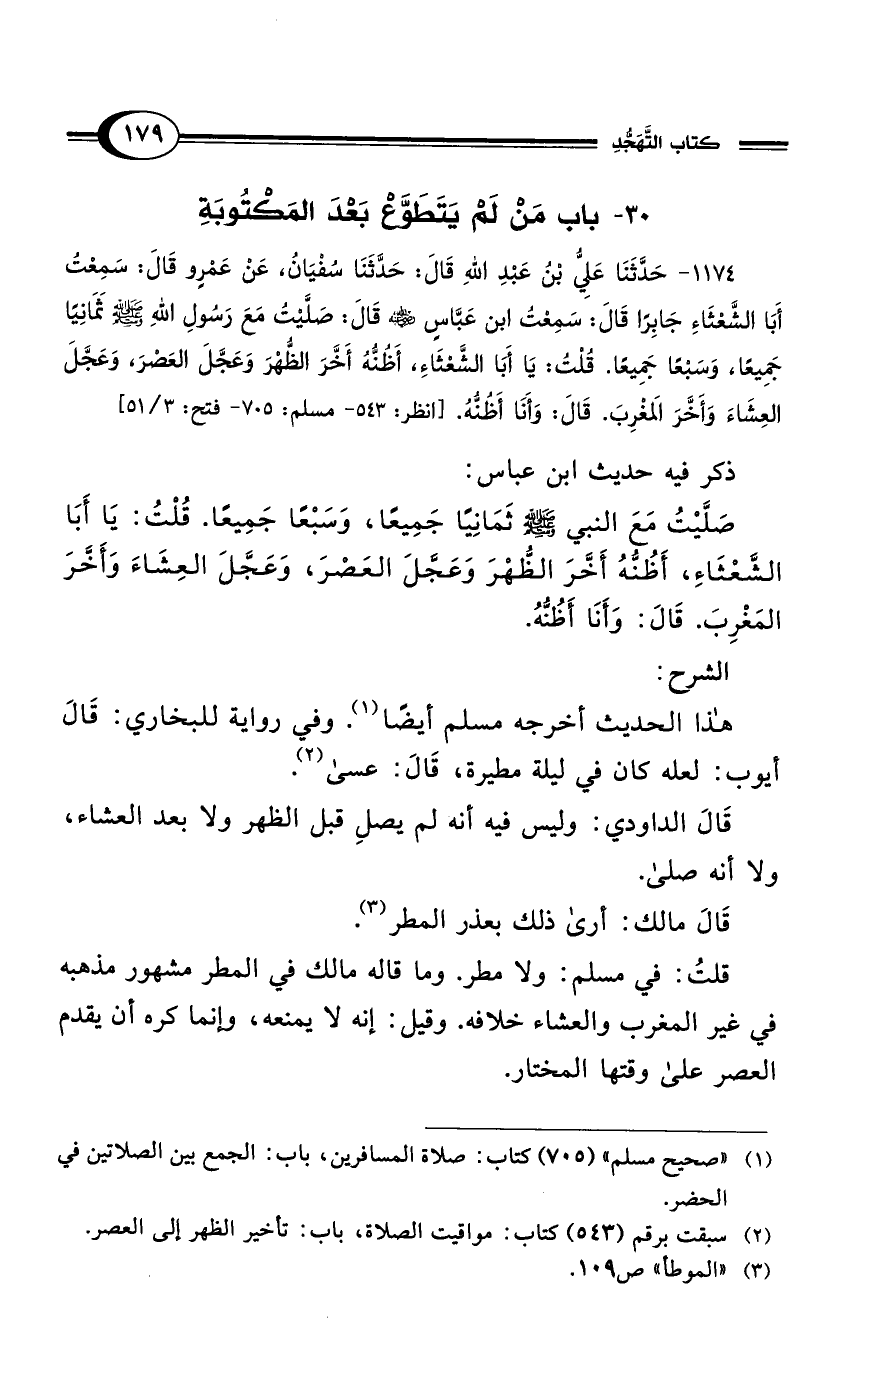 كتاب التَّهَجُّدِ ١٧٩
٣٠- باب مَنْ لَمْ يَتَطَوَّعْ بَعْدَ المَكْتُوبَةِ
١١٧٤- حَدَّثَنَا عَلِيُّ بْنُ عَبْدِ اللهِ قَالَ: حَدَّثَنَا سُفْيَانُ، عَنْ عَمْرٍو قَالَ: سَمِعْتُ
أَبَا الشَّعْثَاءِ جَابِرًا قَالَ: سَمِعْتُ ابن عَبَّاسٍ رضي الله عنهما قَالَ: صَلَّيْتُ مَعَ رَسُولِ اللهِ ﷺ ثَمَانِيًا
جَمِيعًا، وَسَبْعًا جَمِيعًا. قُلْتُ: يَا أَبَا الشَّعْثَاءِ، أَظُنُّهُ أَخَّرَ الظُّهْرَ وَعَجَّلَ العَصْرَ، وَعَجَّلَ
العِشَاءَ وَأَخَّرَ المَغْرِبَ. قَالَ: وَأَنَا أَظُنُّهُ. [انظر: ٥٤٣- مسلم: ٧٠٥- فتح: ٣/ ٥١]
ذكر فيه حديث ابن عباس:
صَلَّيْتُ مَعَ النبي ﷺ ثَمَانِيًا جَمِيعًا، وَسَبْعًا جَمِيعًا. قُلْتُ: يَا أَبَا
الشَّعْثَاءِ، أَظُنُّهُ أَخَّرَ الظُّهْرَ وَعَجَّلَ العَصْرَ، وَعَجَّلَ العِشَاءَ وَأَخَّرَ
المَغْرِبَ. قَالَ: وَأَنَا أَظُنُّهُ.
الشرح:
هذا الحديث أخرجه مسلم أيضًا(١). وفي رواية للبخاري: قَالَ
أيوب: لعله كان في ليلة مطيرة، قَالَ: عسىٰ(٢).
قَالَ الداودي: وليس فيه أنه لم يصلِ قبل الظهر ولا بعد العشاء،
ولا أنه صلىٰ.
قَالَ مالك: أرىٰ ذلك بعذر المطر(٣).
قلتُ: في مسلم: ولا مطر. وما قاله مالك في المطر مشهور مذهبه
في غير المغرب والعشاء خلافه. وقيل: إنه لا يمنعه، وإنما كره أن يقدم
العصر علىٰ وقتها المختار.
(١) «صحيح مسلم» (٧٠٥) كتاب: صلاة المسافرين، باب: الجمع بين الصلاتين في
الحضر.
(٢) سبقت برقم (٥٤٣) كتاب: مواقيت الصلاة، باب: تأخير الظهر إلى العصر.
(٣) «الموطأ» ص١٠٩.